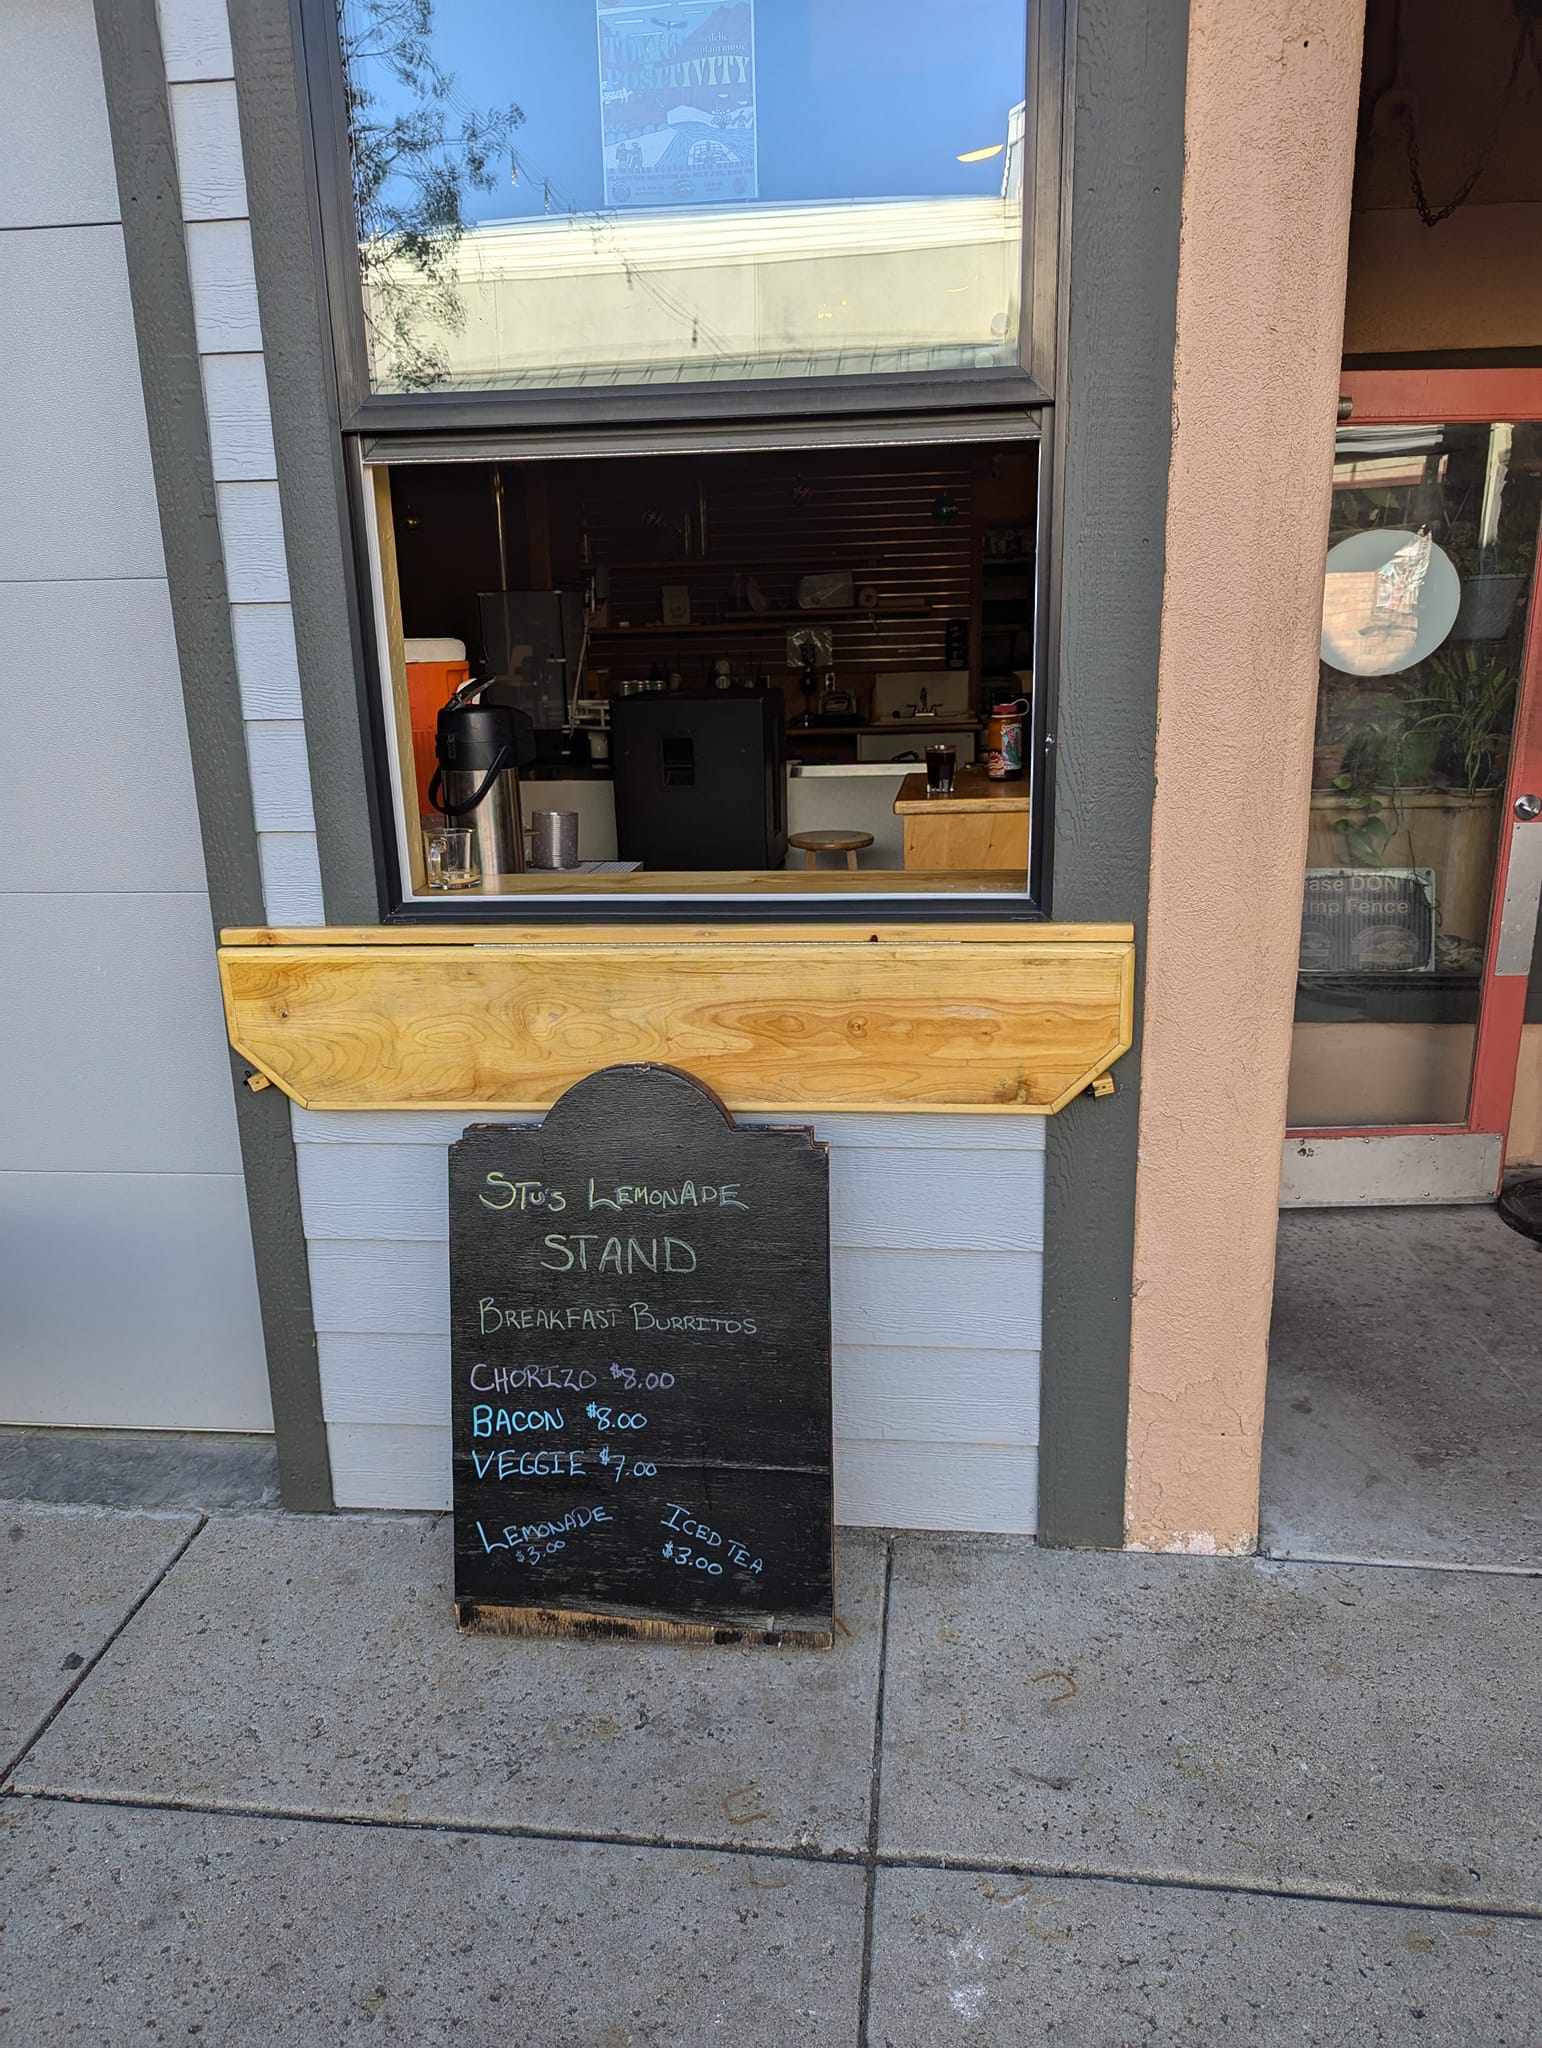 TOXIC
POSITIVITY
mountain music
ase DON'T
mp Fence
STU'S LEMONADE
STAND
BREAKFAST BURRITOS
CHORIZO $8.00
BACON $8.00
VEGGIE $7.00
LEMONADE
$3.00
ICED TEA
$3.00